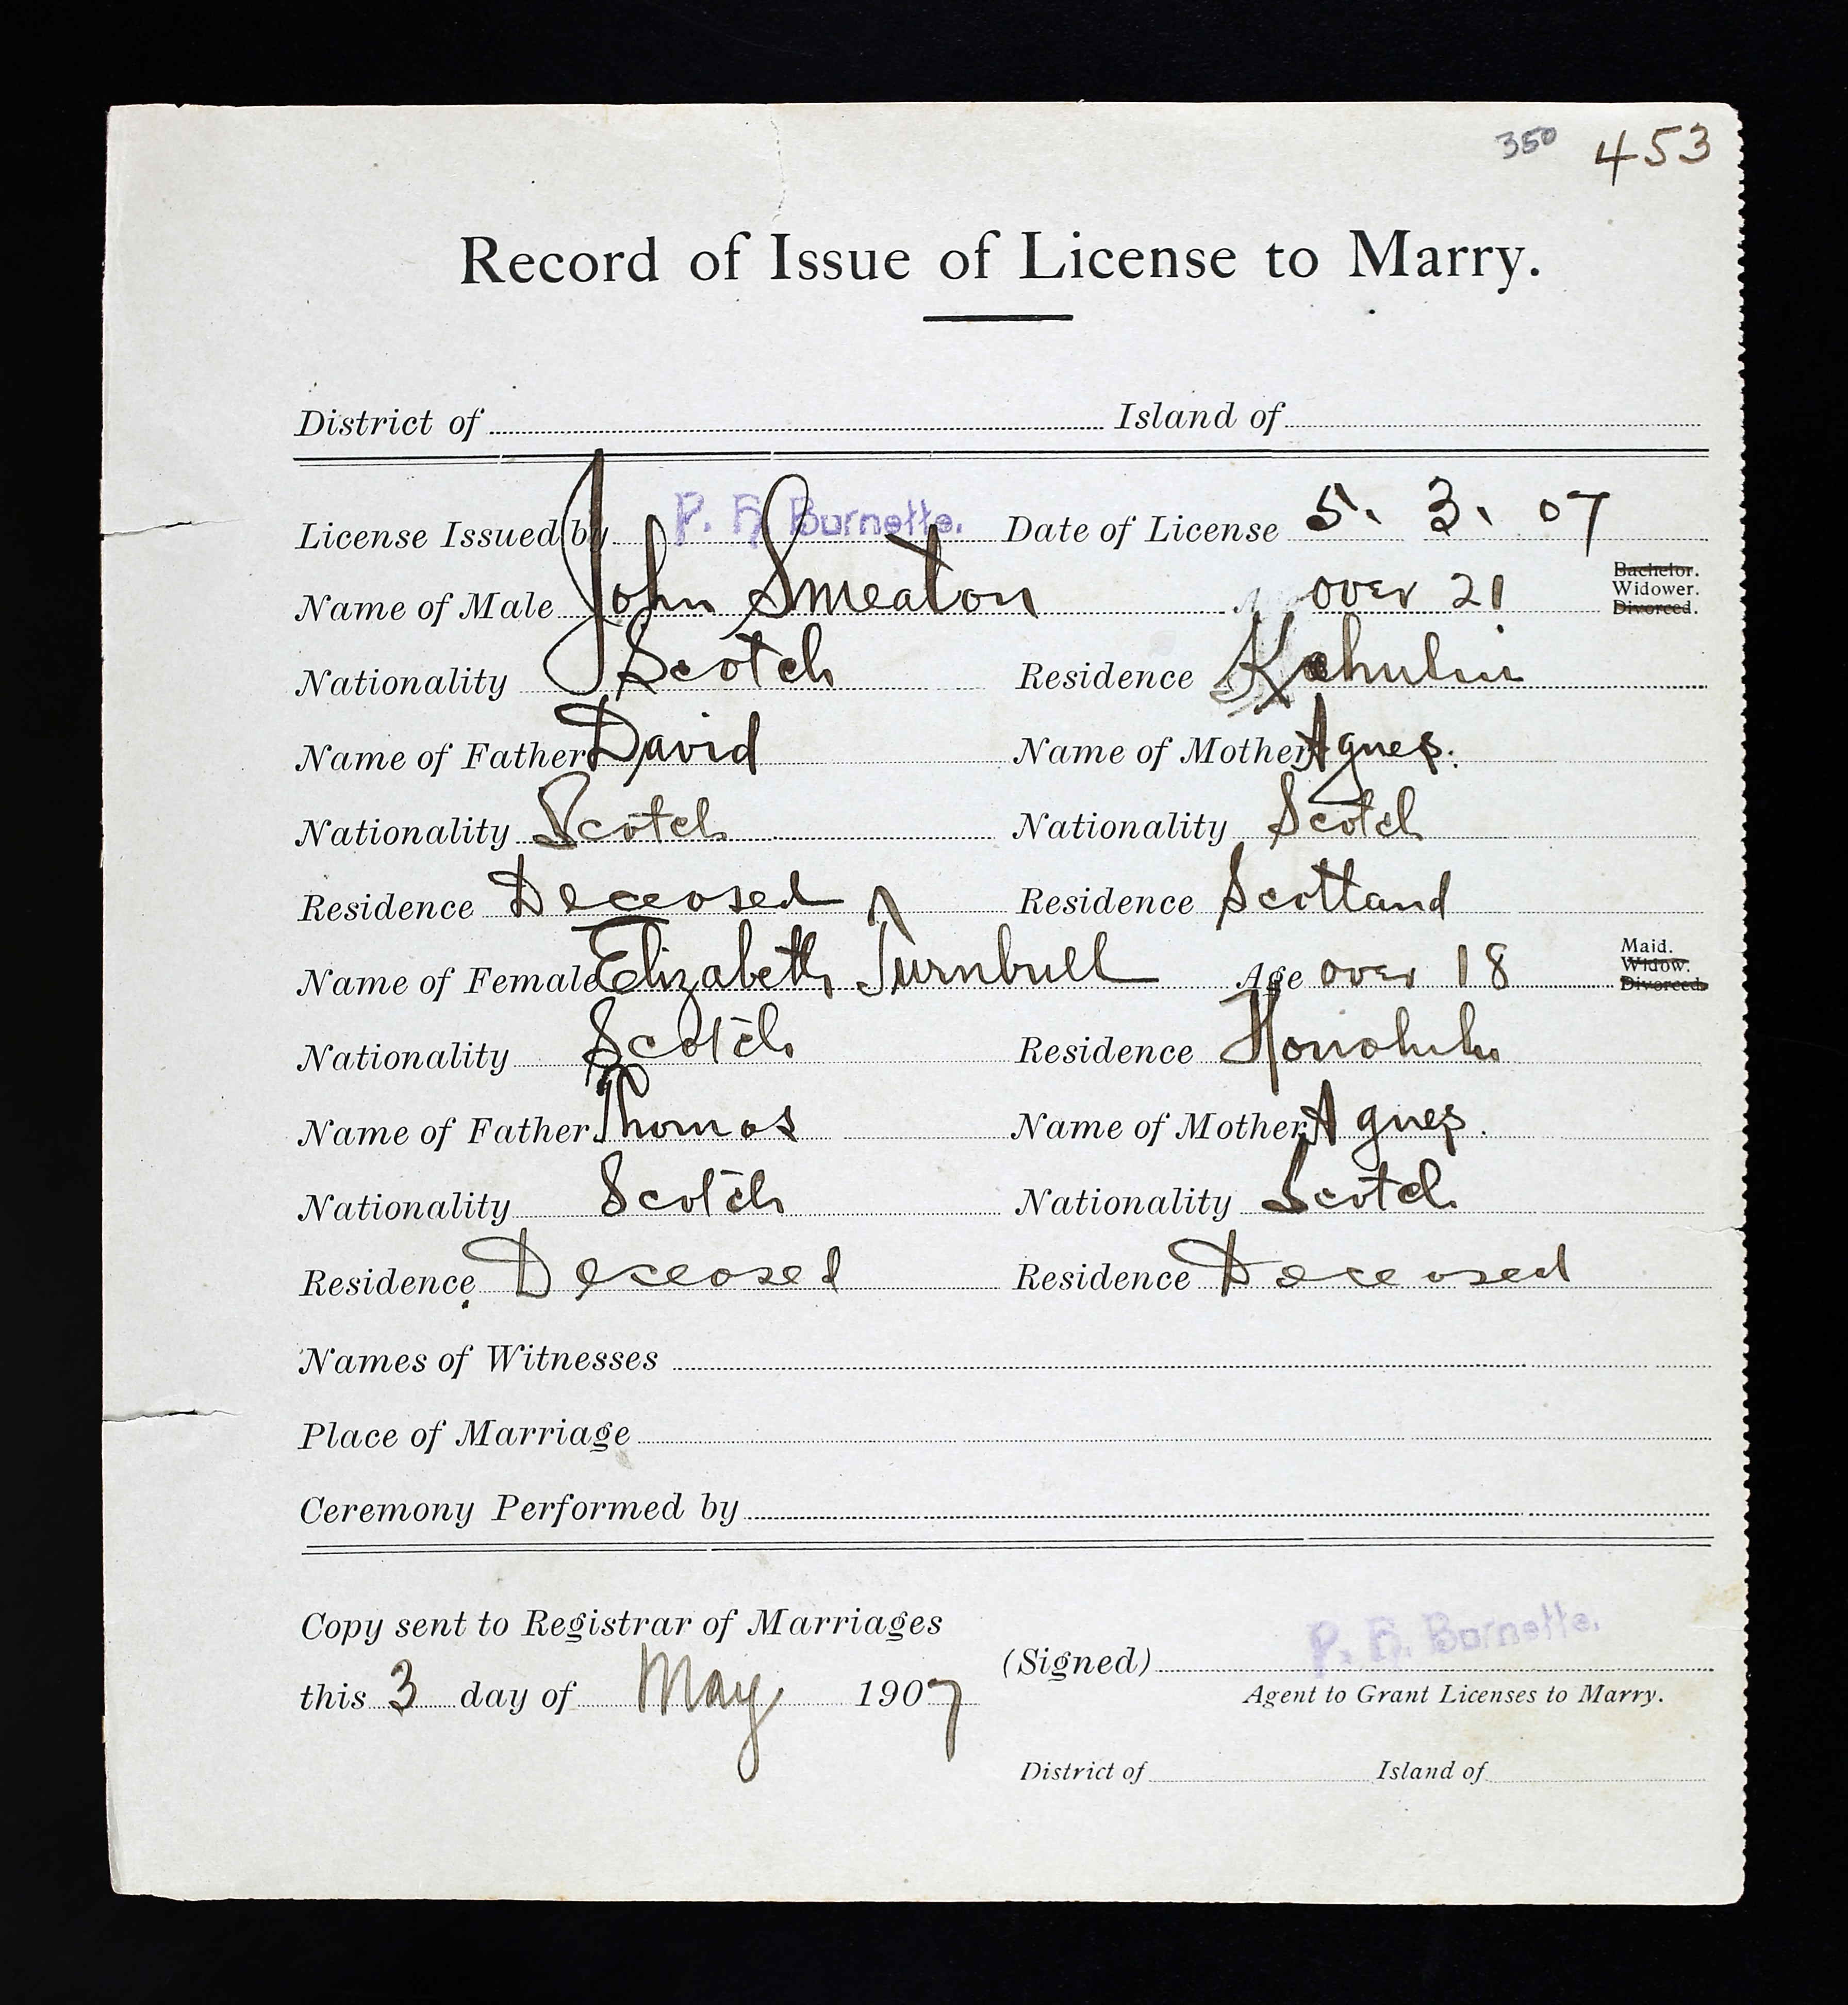 350 453
Record of Issue of License to Marry.
District of Island of
License Issued by P. H. Burnette. Date of License 5. 3. 07
Name of Male John Smeaton over 21 Bachelor. Widower. Divorced.
Nationality Scotch Residence Kahului
Name of Father David Name of Mother Agnes.
Nationality Scotch Nationality Scotch
Residence Deceased Residence Scotland
Name of Female Elizabeth Turnbull Age over 18 Maid. Widow. Divorced.
Nationality Scotch Residence Honolulu
Name of Father Thomas Name of Mother Agnes.
Nationality Scotch Nationality Scotch
Residence Deceased Residence Deceased
Names of Witnesses
Place of Marriage
Ceremony Performed by
Copy sent to Registrar of Marriages
(Signed) P. H. Burnette.
this 3 day of May 1907 Agent to Grant Licenses to Marry.
District of Island of